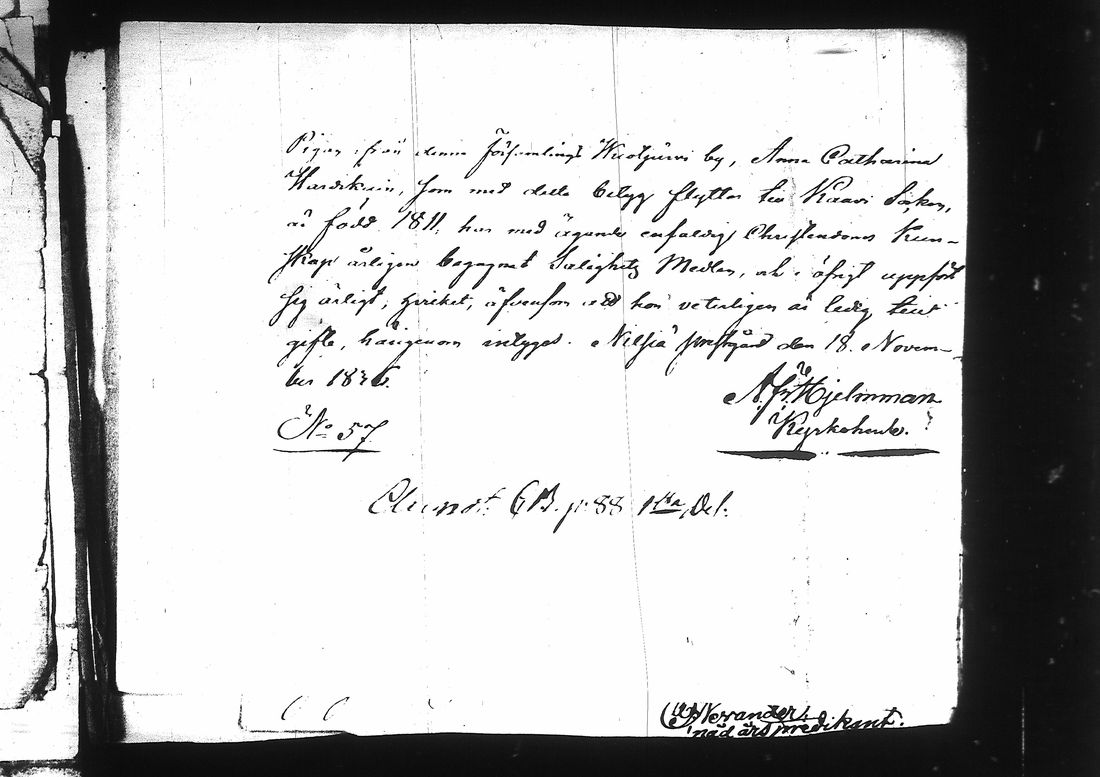 Pigan från denna Församlings Kuotjärvi by, Anna Catharina
som med detta betyg flyttar till Kaavi Socken,
är född 1811; har med ägande enfaldig Christendoms Kun-
skap årligen begagnat Salighets Medlen, och i öfrigt uppfört
sig ärligt; hvilket, äfvensom att hon veterligen är ledig till
gifte, härigenom intygas. Nilsiä prestgård den 18. Novem-
ber
A. Fr. Hjelmman
Kyrkoherde.
No 57
p. 88 1sta Del.
Novander
nådårspredikant.